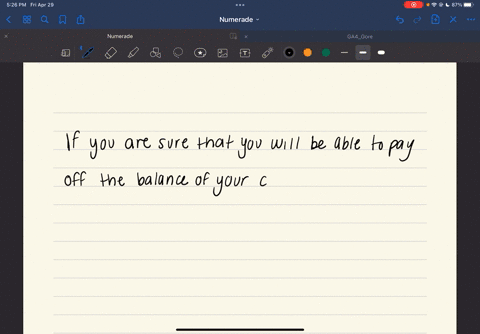 5:26 PM Fri Apr 29
87%
Numerade
Numerade
If you are sure that you will be able to pay
off the balance of your c